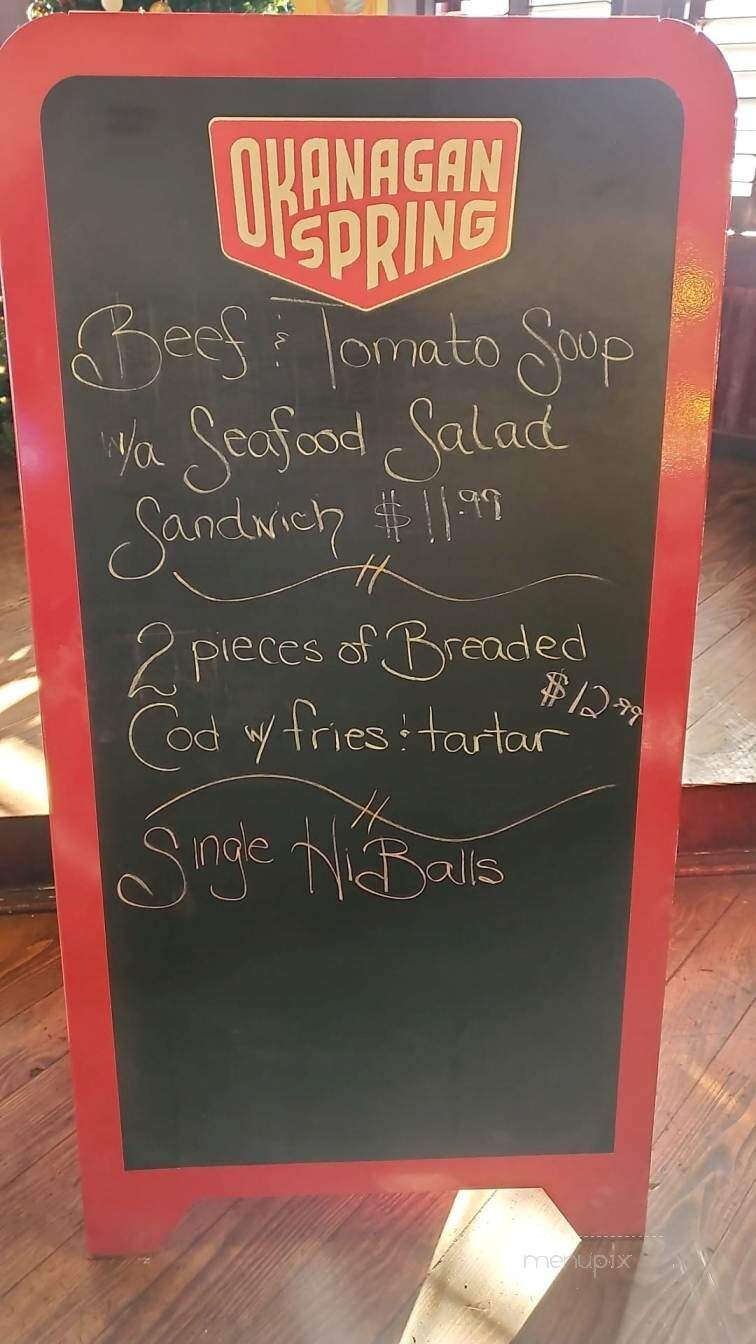 OKANAGAN
SPRING
Beef & Tomato Soup
w/a Seafood Salad
Sandwich $11.99
2 pieces of Breaded
$12.99
Cod w/ fries & tartar
Single HiBalls
menupix